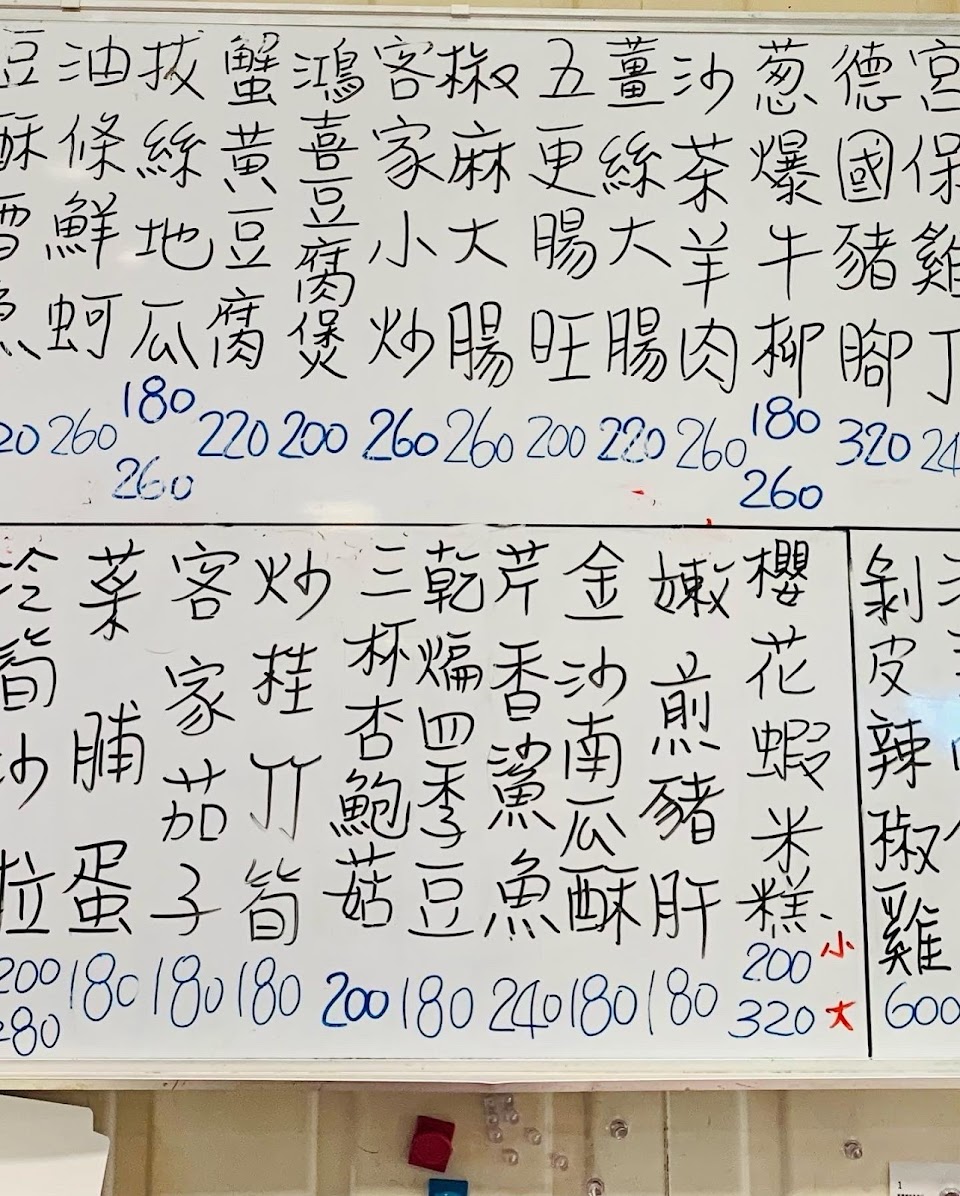 宮保雞丁 24
德國豬腳 320
葱爆牛柳 180 260
沙茶羊肉 260
薑絲大腸 220
五更腸旺 200
椒麻大腸 260
客家小炒 260
鴻喜豆腐煲 200
蟹黃豆腐 220
拔絲地瓜 180 260
油條鮮蚵 260
豆酥雪魚 20
剝皮辣椒雞 600
櫻花蝦米糕 小 200 大 320
嫩煎豬肝 180
金沙南瓜酥 180
芹香鯊魚 240
乾煸四季豆 180
三杯杏鮑菇 200
炒桂竹筍 180
客家茄子 180
菜脯蛋 180
冷筍沙拉 200 280